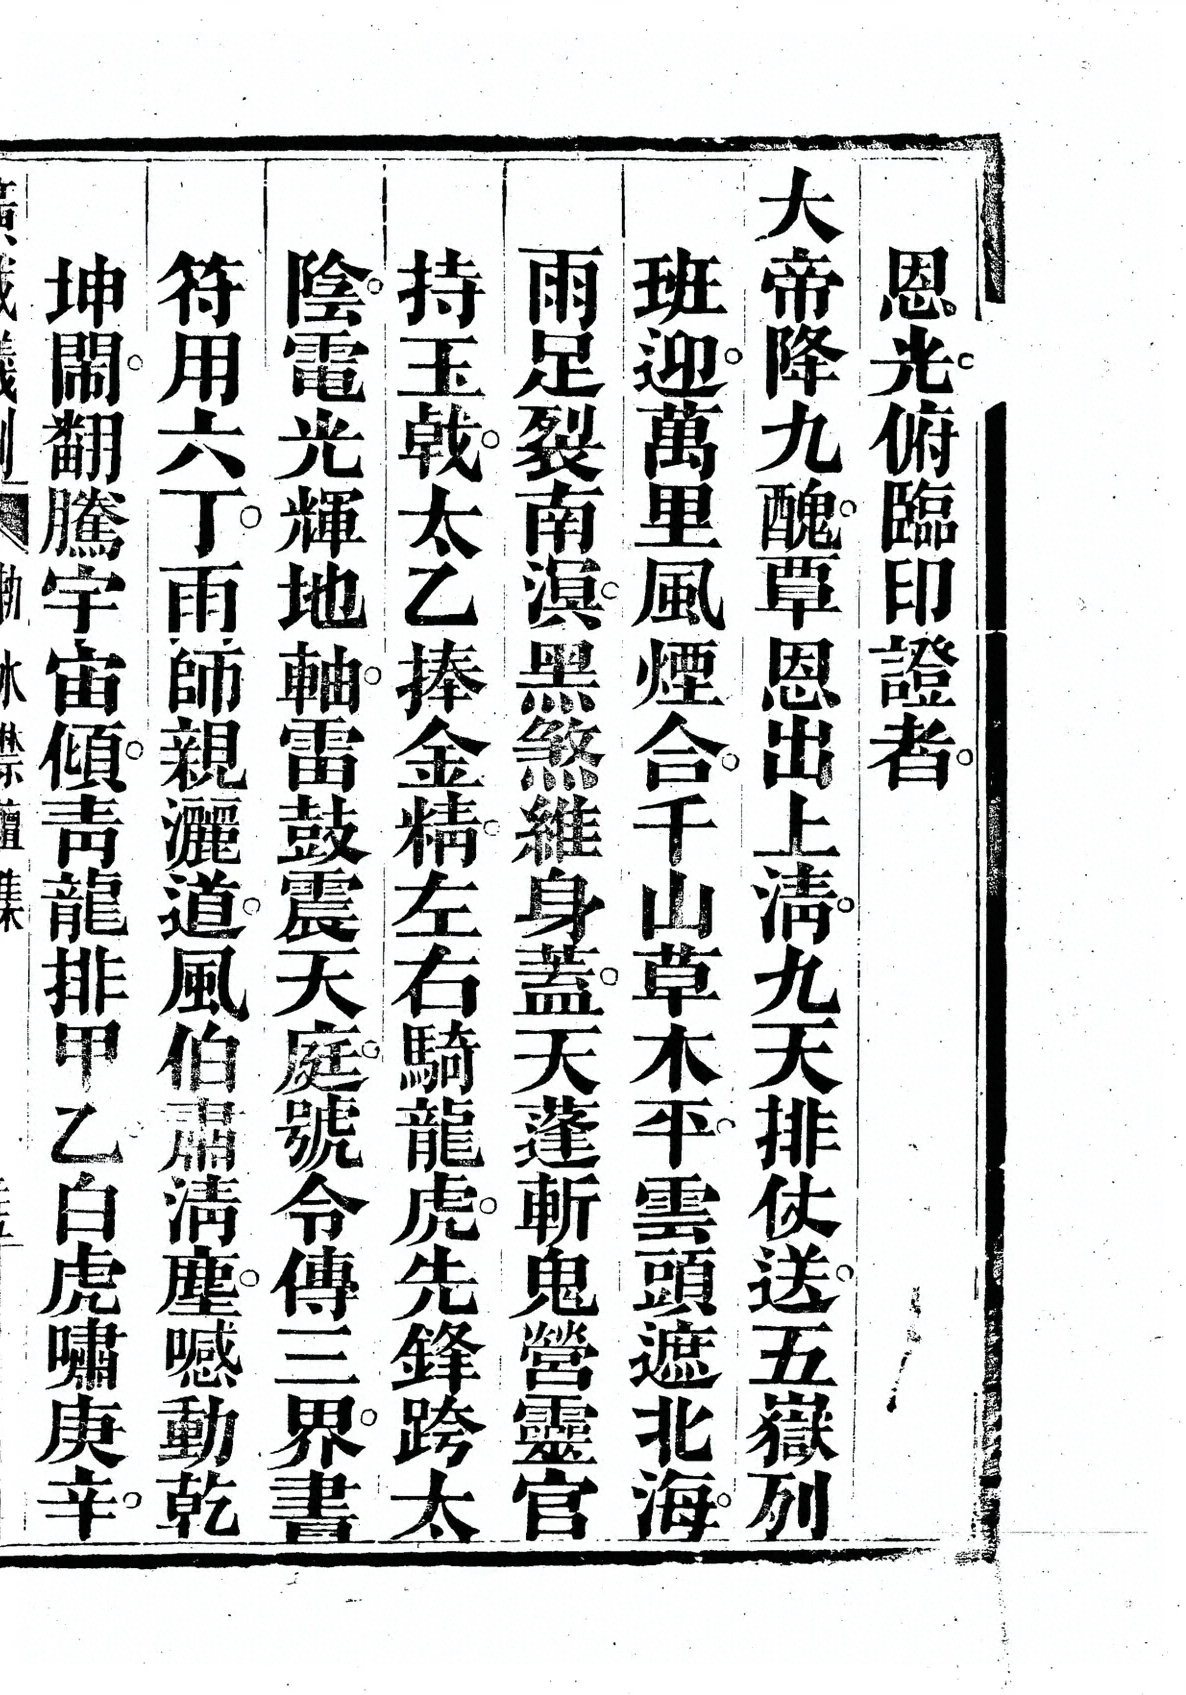 恩光。俯臨印證者。
大帝降九醜。覃恩出上淸。九天排仗送。五嶽列
班迎。萬里風煙合。千山草木平。雲頭遮北海。
雨足裂南溟。黑煞維身蓋。天蓬斬鬼營靈官
持玉戟。太乙捧金精。左右騎龍虎。先鋒跨太
陰。電光輝地軸。雷鼓震天庭。號令傳三界。書
符用六丁。雨師親灑道。風伯肅淸塵。喊動乾
坤鬧。翻騰宇宙傾。靑龍排甲乙。白虎嘯庚辛。